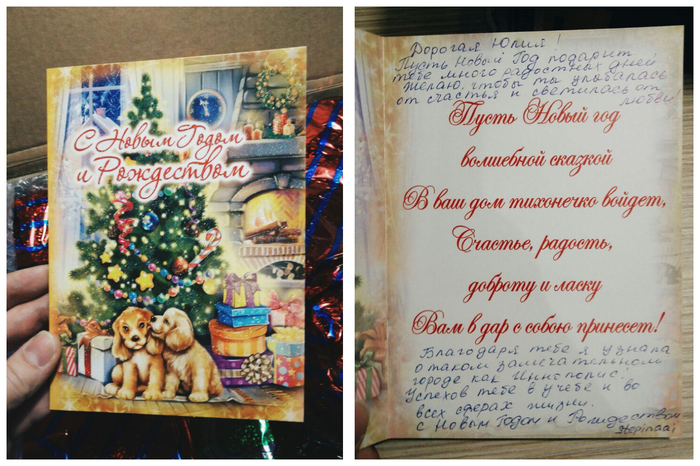 С Новым Годом
и Рождеством
Дорогая Юлия!
Пусть Новый Год подарит
тебе много радостных дней
Желаю, чтобы ты улыбалась
от счастья и светилась от
любви!
Пусть Новый год
волшебной сказкой
В ваш дом тихонечко войдет,
Счастье, радость,
доброту и ласку
Вам в дар с собою принесет!
Благодаря тебе я узнала
о таком замечательном
городе как Иннополис!
Успехов тебе в учебе и во
всех сферах жизни.
с Новым Годом и Рождеством